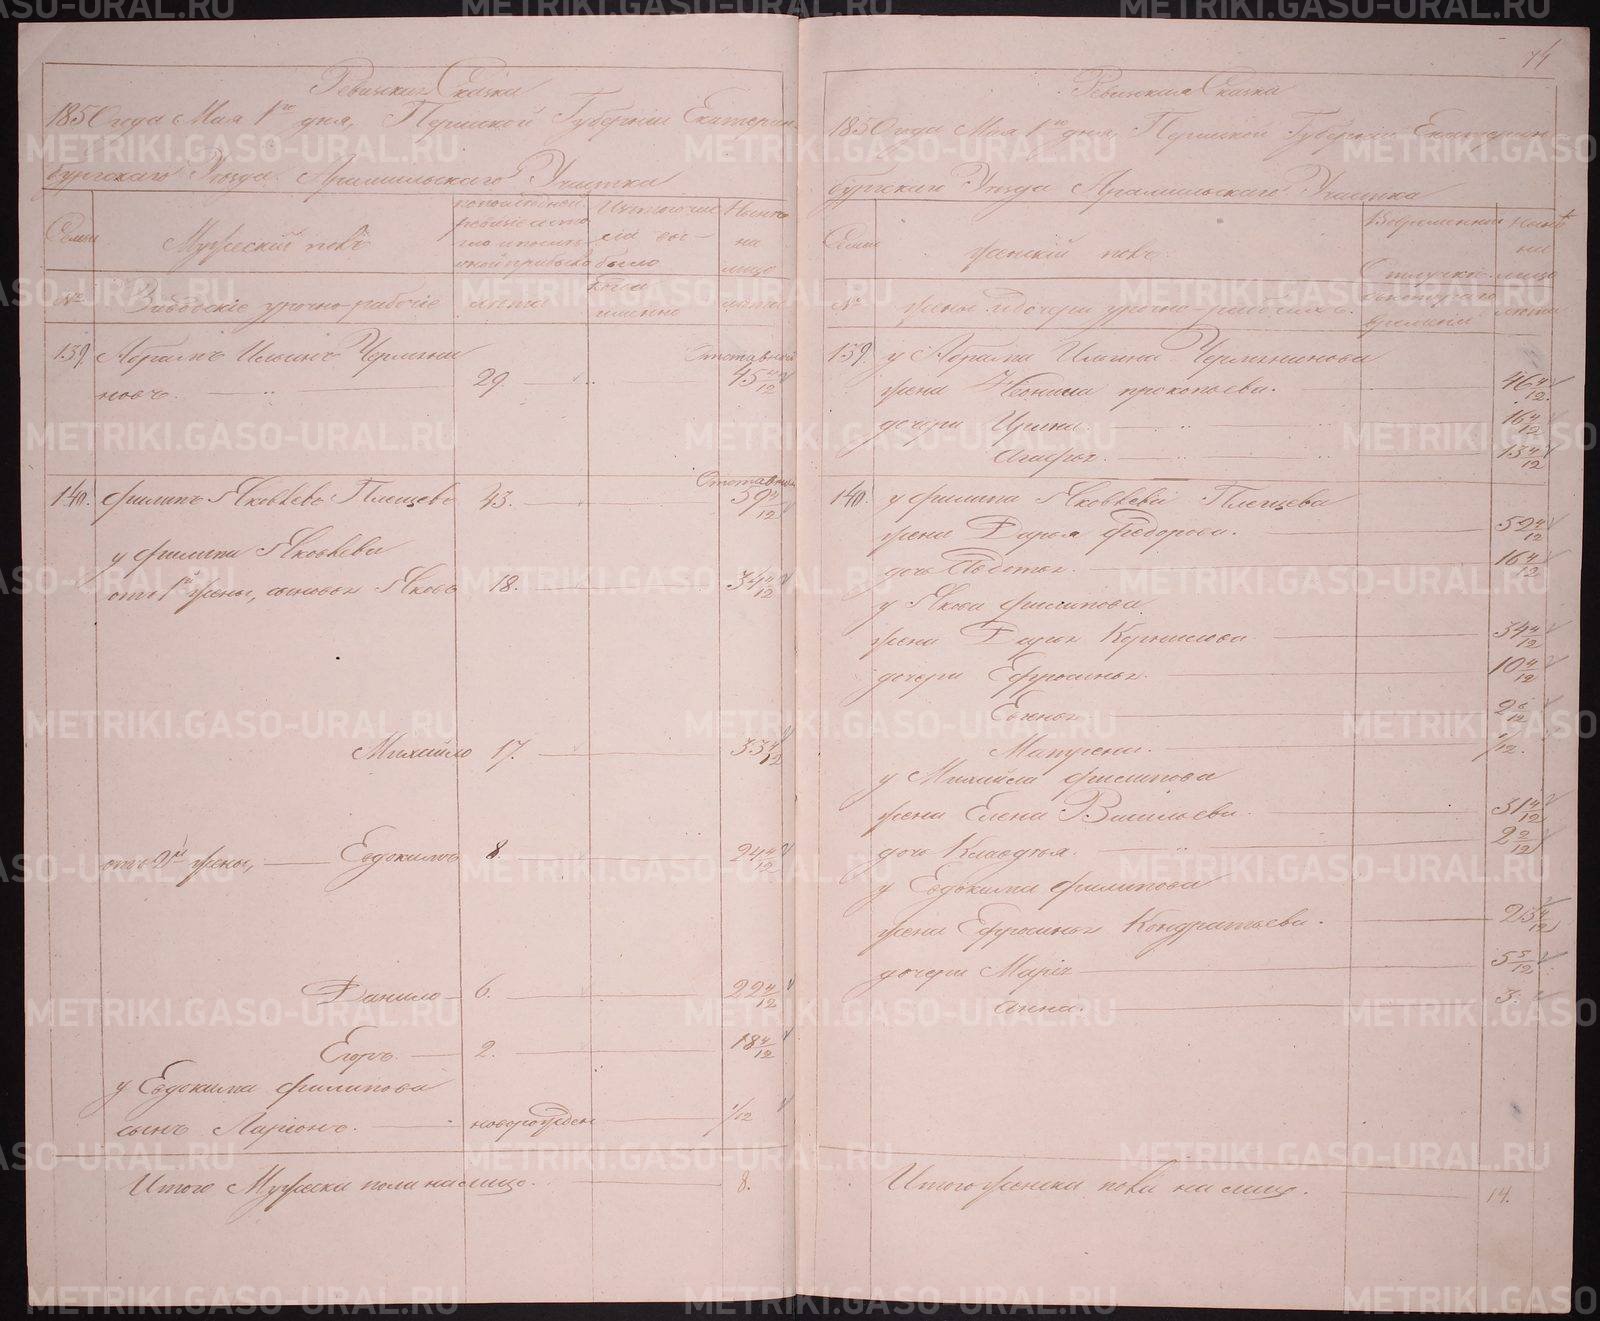 Ревизская Сказка
1850 года Мая 1го дня, Пермской Губернии Екатерин-
бургскаго Уезда Арамильскаго Участка
Семьи
Мужескій полъ
По последней
ревизіи состо
яло и после
оной прибыло
Изъ того числа
выбыло
Ныне
на
лицо
№
Заводскіе урочно-рабочіе
лета
когда
именно
лета
139. Абрамъ Ильинъ Чермени
новъ. 29. Отставной 45 4/12
140. Филипъ Яковлевъ Плещевъ 43. Отставной 59 4/12
у Филипа Яковлева
отъ 1й жены, сыновья Яковъ 18. 34 4/12
Михайло 17. 33 4/12
отъ 2й жены, Евдокимъ 8. 24 4/12
Данило 6. 22 4/12
Егоръ 2. 18 4/12
у Евдокима Филипова
сынъ Ларіонъ. новорожден 1/12
Итого Мужеска пола на лицо. 8.
74
Ревизская Сказка
1850 года Мая 1го дня, Пермской Губерніи Екатерин
бургскаго Уезда Арамильскаго Участка
Семьи
женскій полъ
Во временной
отлучке
съ котораго
времени
Ныне
на
лицо
лета
№
жены и дочери урочно-рабочихъ.
139. у Абрама Ильина Черменинова
жена Неонила Прокопьева. 46 4/12
дочери Ирина. 16 4/12
Агафья. 13 4/12
140. у Филипа Яковлева Плещева
жена Дарья Федорова. 52 4/12
дочь Авдотья. 16 4/12
у Якова Филипова
жена Дарья Корнилова 34 4/12
дочери Ефросинья. 10 4/12
Евгенья 2 6/12
Матрена. 1/12.
у Михайла Филипова
жена Елена Васильева. 31 4/12
дочь Клавдія. 2 2/12
у Евдокима Филипова
жена Ефросинья Кондратьева. 25 4/12
дочери Марія 5 3/12
Анна. 3.
Итого женска пола на лицо. 14.
METRIKI.GASO-URAL.RU